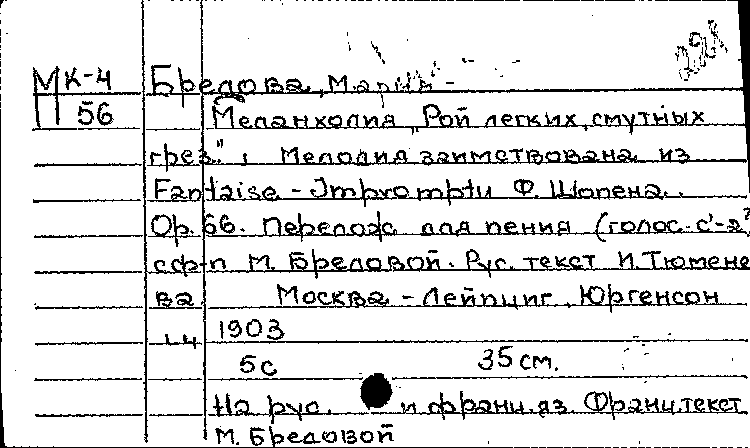 МК-4 Бредова, Мария -
П 56 Меланхолия "Рой легких, смутных
грез.", Мелодия заимствована из
Fantaise - Impromptu Ф. Шопена.
Op. 66. Перелож для пения (голос с'-а²
с ф-п М. Бредовой. Рус. текст И. Тюмене
ва. Москва - Лейпциг. Юргенсон
1903
5с 35 см.
На рус. и франц. яз. Франц. текст
М. Бредовой